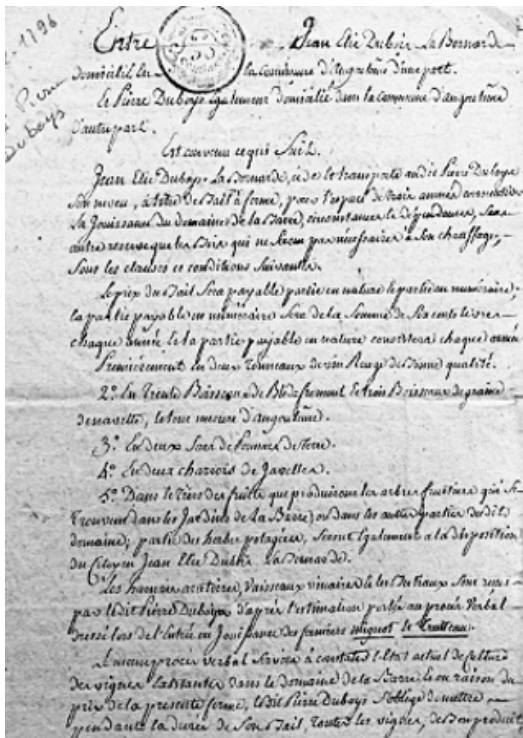 1796
Pierre
Duboys
Entre Jean Elie Dubois La Bernarde
domicilié en la commune d'angouleme d'une part.
et Pierre Duboys également domicilié dans la commune d'angoulême
d'autre part.
Est convenu ce qui Suit.
Jean Elie Duboys La Bernarde, cède et transporte audit Pierre Duboys
Son neveu, à titre de Bail à ferme, pour l'espace de trois années consécutives
La Jouissance du domaine de la Barre, circonstances et dépendances, Sans
autre réserve que les Bois qui ne Seront pas nécessaires à Son chauffage,
Sous les clauses et conditions Suivantes.
Le prix du Bail Sera payable partie en nature et partie en numéraire,
la partie payable en numéraire Sera de la Somme de Six cents livres
chaque année et la partie payable en nature consistera chaque année
Premièrement en deux Tonneaux de vin Rouge de Bonne qualité.
2° En Trente Boisseaux de Bled froment et trois Boisseaux de graine
de navette, le tout mesure d'angoulême.
3° En deux Sacs de Pommes de Terre.
4° En deux charrois de Javelles.
5° Dans le Tiers des fruits que produiront les arbres fruitiers qui Se
Trouvent dans les Jardins de La Barre, ou dans les autres parties dudit
domaine; partie des herbes potagères, Seront Egalement a la disposition
du Citoyen Jean Elie Dubois La Bernarde.
Les aratoires, Vaisseaux vinaires et les Bestiaux Sont remis
par ledit Pierre Duboys d'après l'estimation portée au procès Verbal
dressé lors de l'entrée en Jouissance des fermiers mignot et Trutteau.
Le même procès verbal Servira à constater l'Etat actuel de culture
des vignes Existantes dans le domaine de la Barre et en raison du
prix de la presente ferme, ledit Pierre Duboys S'oblige de mettre
pendant la durée de Son Bail, toutes les vignes, de Bon produit